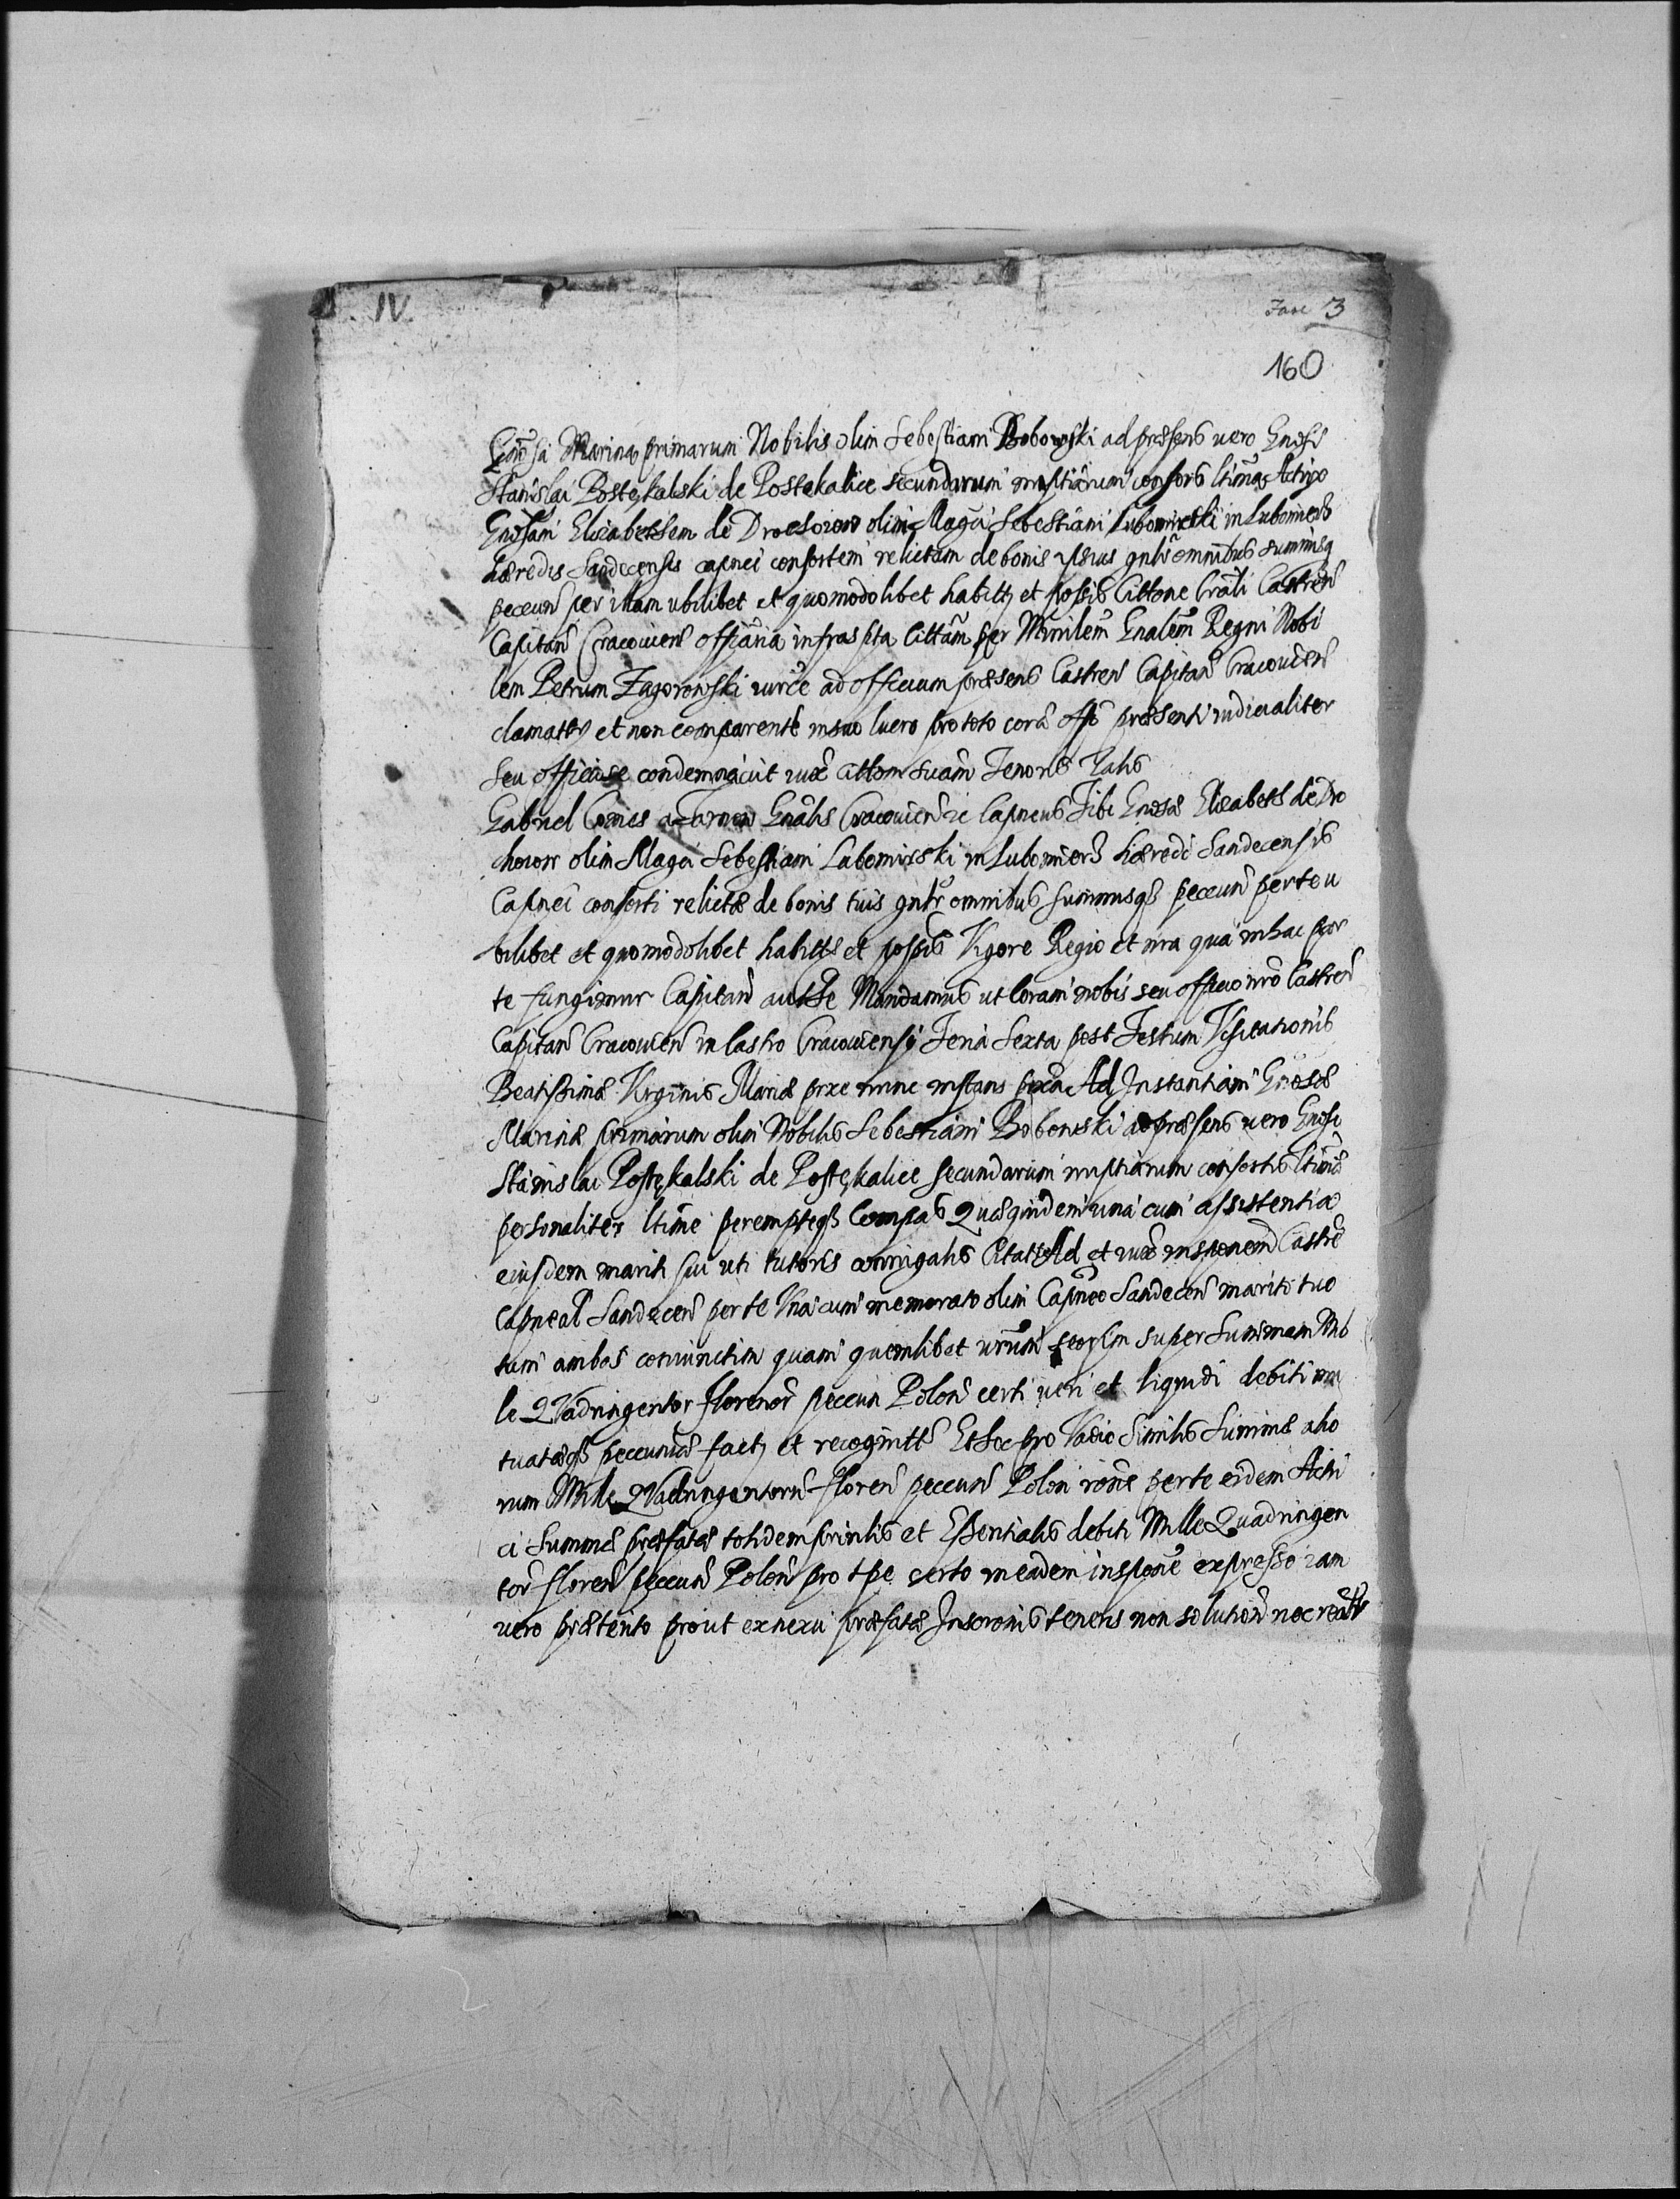 IV
Fasc 3
160
Gnosa Marina primarum Nobilis olim Sebestiani Bobowski ad præsens vero Gnosi
Stanislai Postękalski de Postekalice secundarum nuptiarum consors ltima Actrix
Gnosam Elizabetham de Drochoiow olim Magci Sebestiani Lubomirski in Lubomierz
hæredis Sandecensis capnei consortem relictam de bonis ipsius gnlr omnibus summisq
peccun per illam ubilibet et quomodolibet habitis et possis Cittone Crali Castren
Capitan Cracovien officina infrascpta Cittam per Mirilem Gnalem Regni Nobi
lem Petrum Zagorowski iurce ad officium præsens Castren Capitan Cracovien
clamatam et non comparente in suo lucro pro toto cora offo præsenti iudicialiter
seu officiose condemnavit iuxa cittom suam Tenoris Talis
Gabriel Comes a Tarnow Gnalis Cracovien zc Capneus Tibi Gnosæ Elizabeth de Dro
hoiow olim Magci Sebestiani Lubomirski in Lubomierz hæredi Sandecensis
Capnei consorti relictæ de bonis tuis gnlr omnibus summisqe peccun per te u
bilibet et quomodolibet habitis et possis Vigore Regio et nra qua in hac par
te fungimur Capitan autthe Mandamus ut coram nobis seu officio nro Castren
Capitan Cracovien in Castro Cracoviensi Feria Sexta post Festum Visitationis
Beatissimæ Virginis Mariæ prxe nunc instans pxa Ad Instantiam Gnosæ
Marinæ primarum olim Nobilis Sebestiani Bobowski ad præsens vero Gnosi
Stanislai Postękalski de Postękalice secundarum nuptiarum consortis ltimæ
personaliter ltime perempteqz Compas Quæ quidem una cum assistentia
eiusdem mariti sui uti tutoris coniugalis Citat Ad et iuxa inspnem Castre
Capneal Sandecen per te Una cum memorato olim Capneo Sandecen marito tuo
tam ambos coniunctim quam quemlibet vrum seorsim super Summam Mil
le Quadringentor florenor peccun Polon certi veri et liquidi debiti mu
tuatæqz peccuniæ factam et recognittam Et hoc pro Vadio Similis Summæ alio
rum Mille Quadringentoru floren peccun Polon rone per te eidem Actri
ci Summæ præfatæ totidem prinlis et Essentialis debiti Mille Quadringen
tor floren peccun Polon pro tpe certo in eadem inspone expresso iam
vero prætento prout ex nexu præfatæ Inscronis teneris non solution nec reddit